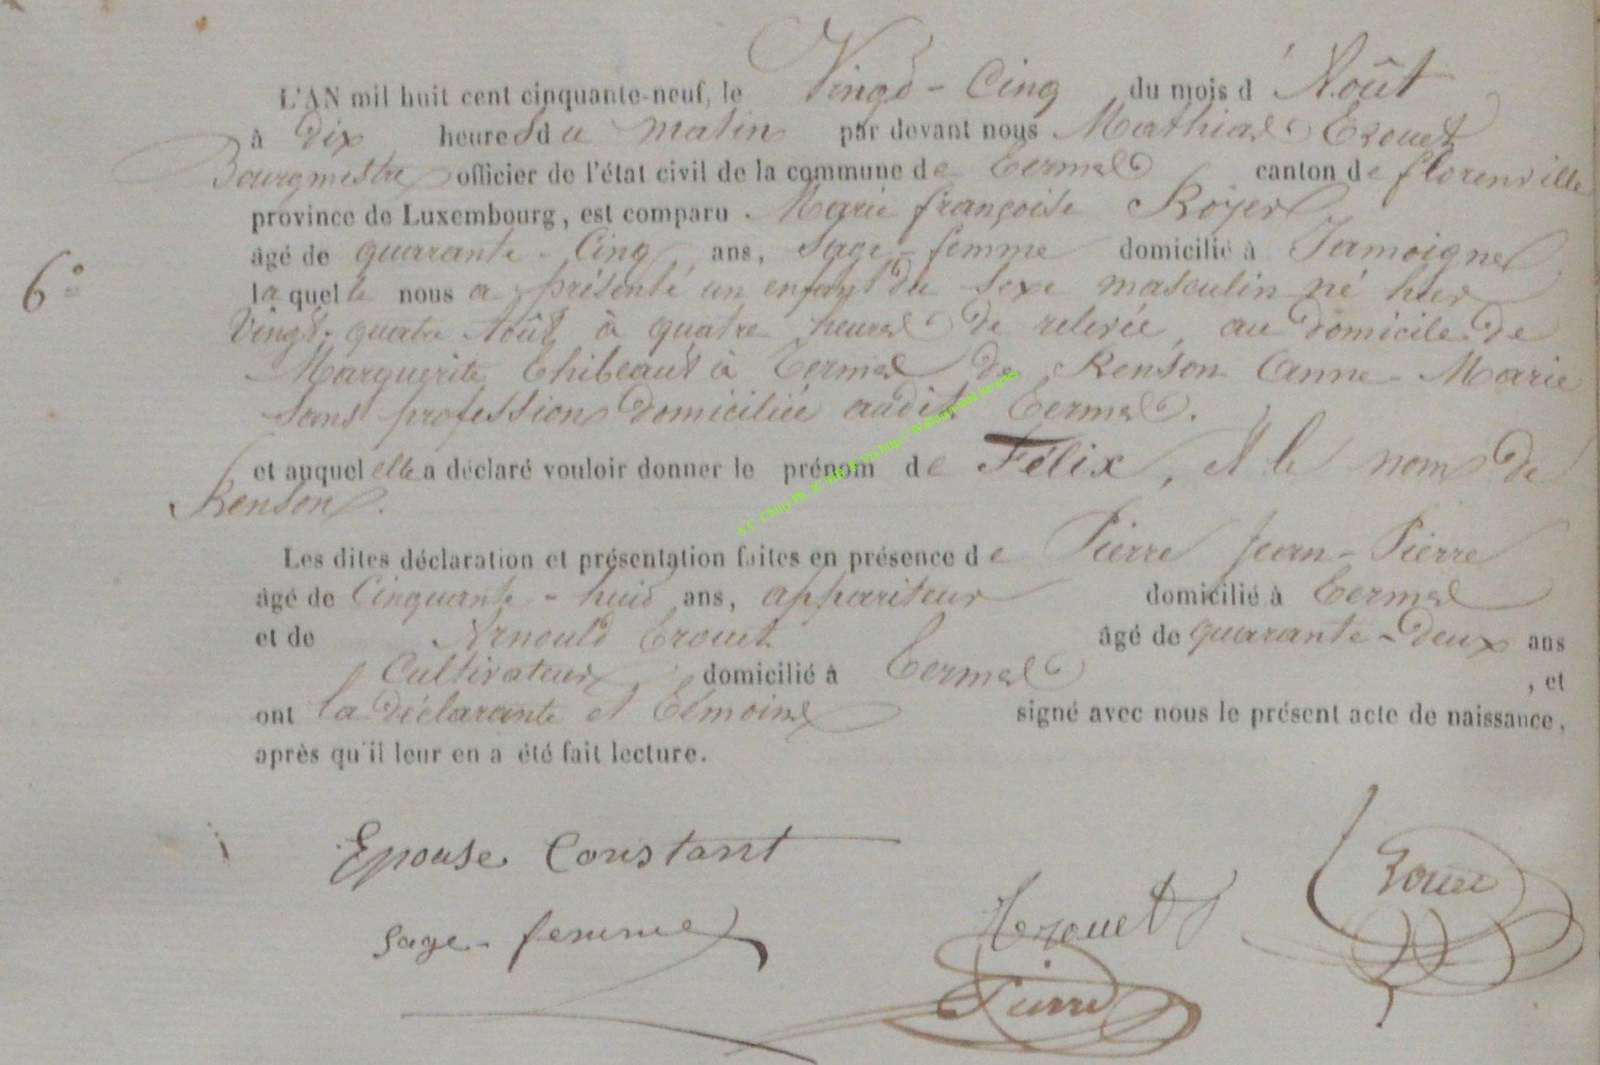 L'AN mil huit cent cinquante-neuf, le Vingt-Cinq du mois d'Août
à dix heures du matin par devant nous Mathias Trouet
Bourgmestre officier de l'état civil de la commune de Termes canton de florenville
province de Luxembourg, est comparu Marie françoise Royer
âgé de quarante-Cinq ans, Sage-femme domicilié à Jamoigne
6°
laquelle nous a présenté un enfant du Sexe masculin né hier
Vingt-quatre Août à quatre heures de relevée, au domicile de
Marguerite Thibeaut à Termes de Renson Anne-Marie
Sans profession domiciliée audit Termes.
et auquel elle a déclaré vouloir donner le prénom de Félix, et le nom de
Renson.
Les dites déclaration et présentation faites en présence de Pierre Jean-Pierre
âgé de Cinquante-huit ans, appariteur domicilié à Termes
et de Arnould Trouet âgé de quarante-deux ans
Cultivateur domicilié à Termes , et
ont la déclarante et témoins signé avec nous le présent acte de naissance,
après qu'il leur en a été fait lecture.
Epouse Constant
Sage-femme
Trouet
Trouet
Pierre